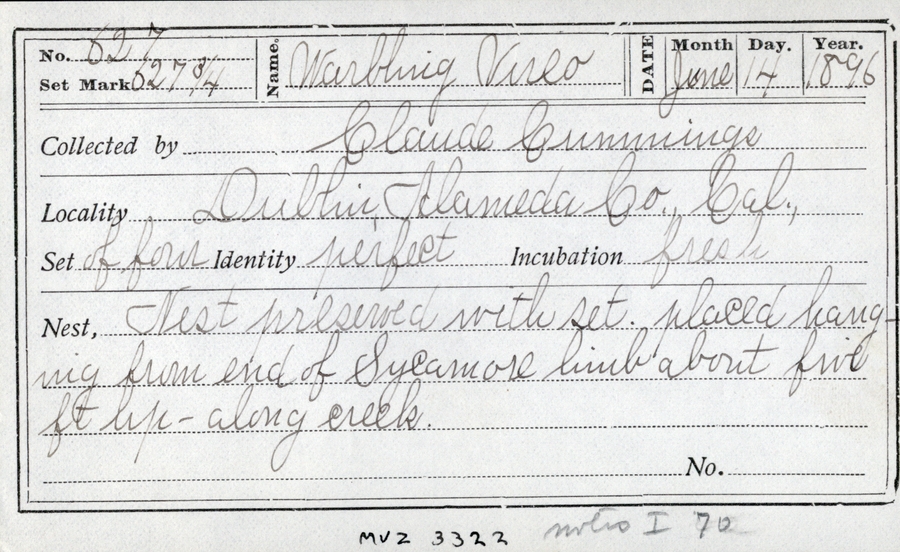 No. 627 Name. Warbling Vireo DATE Month Day. Year.
Set Mark 627 3/4 June 14 1896
Collected by Claude Cummings
Locality Dublin, Alameda Co., Cal.,
Set of four Identity perfect Incubation fresh
Nest, Nest preserved with set. placed hang-
ing from end of Sycamore limb about five
ft up - along creek.
No.
MVZ 3322 notes I 70